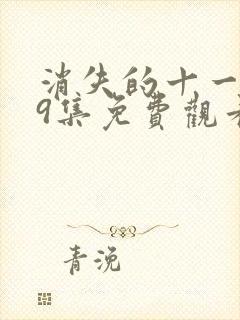 消失的十一
9集免費觀看
青浼